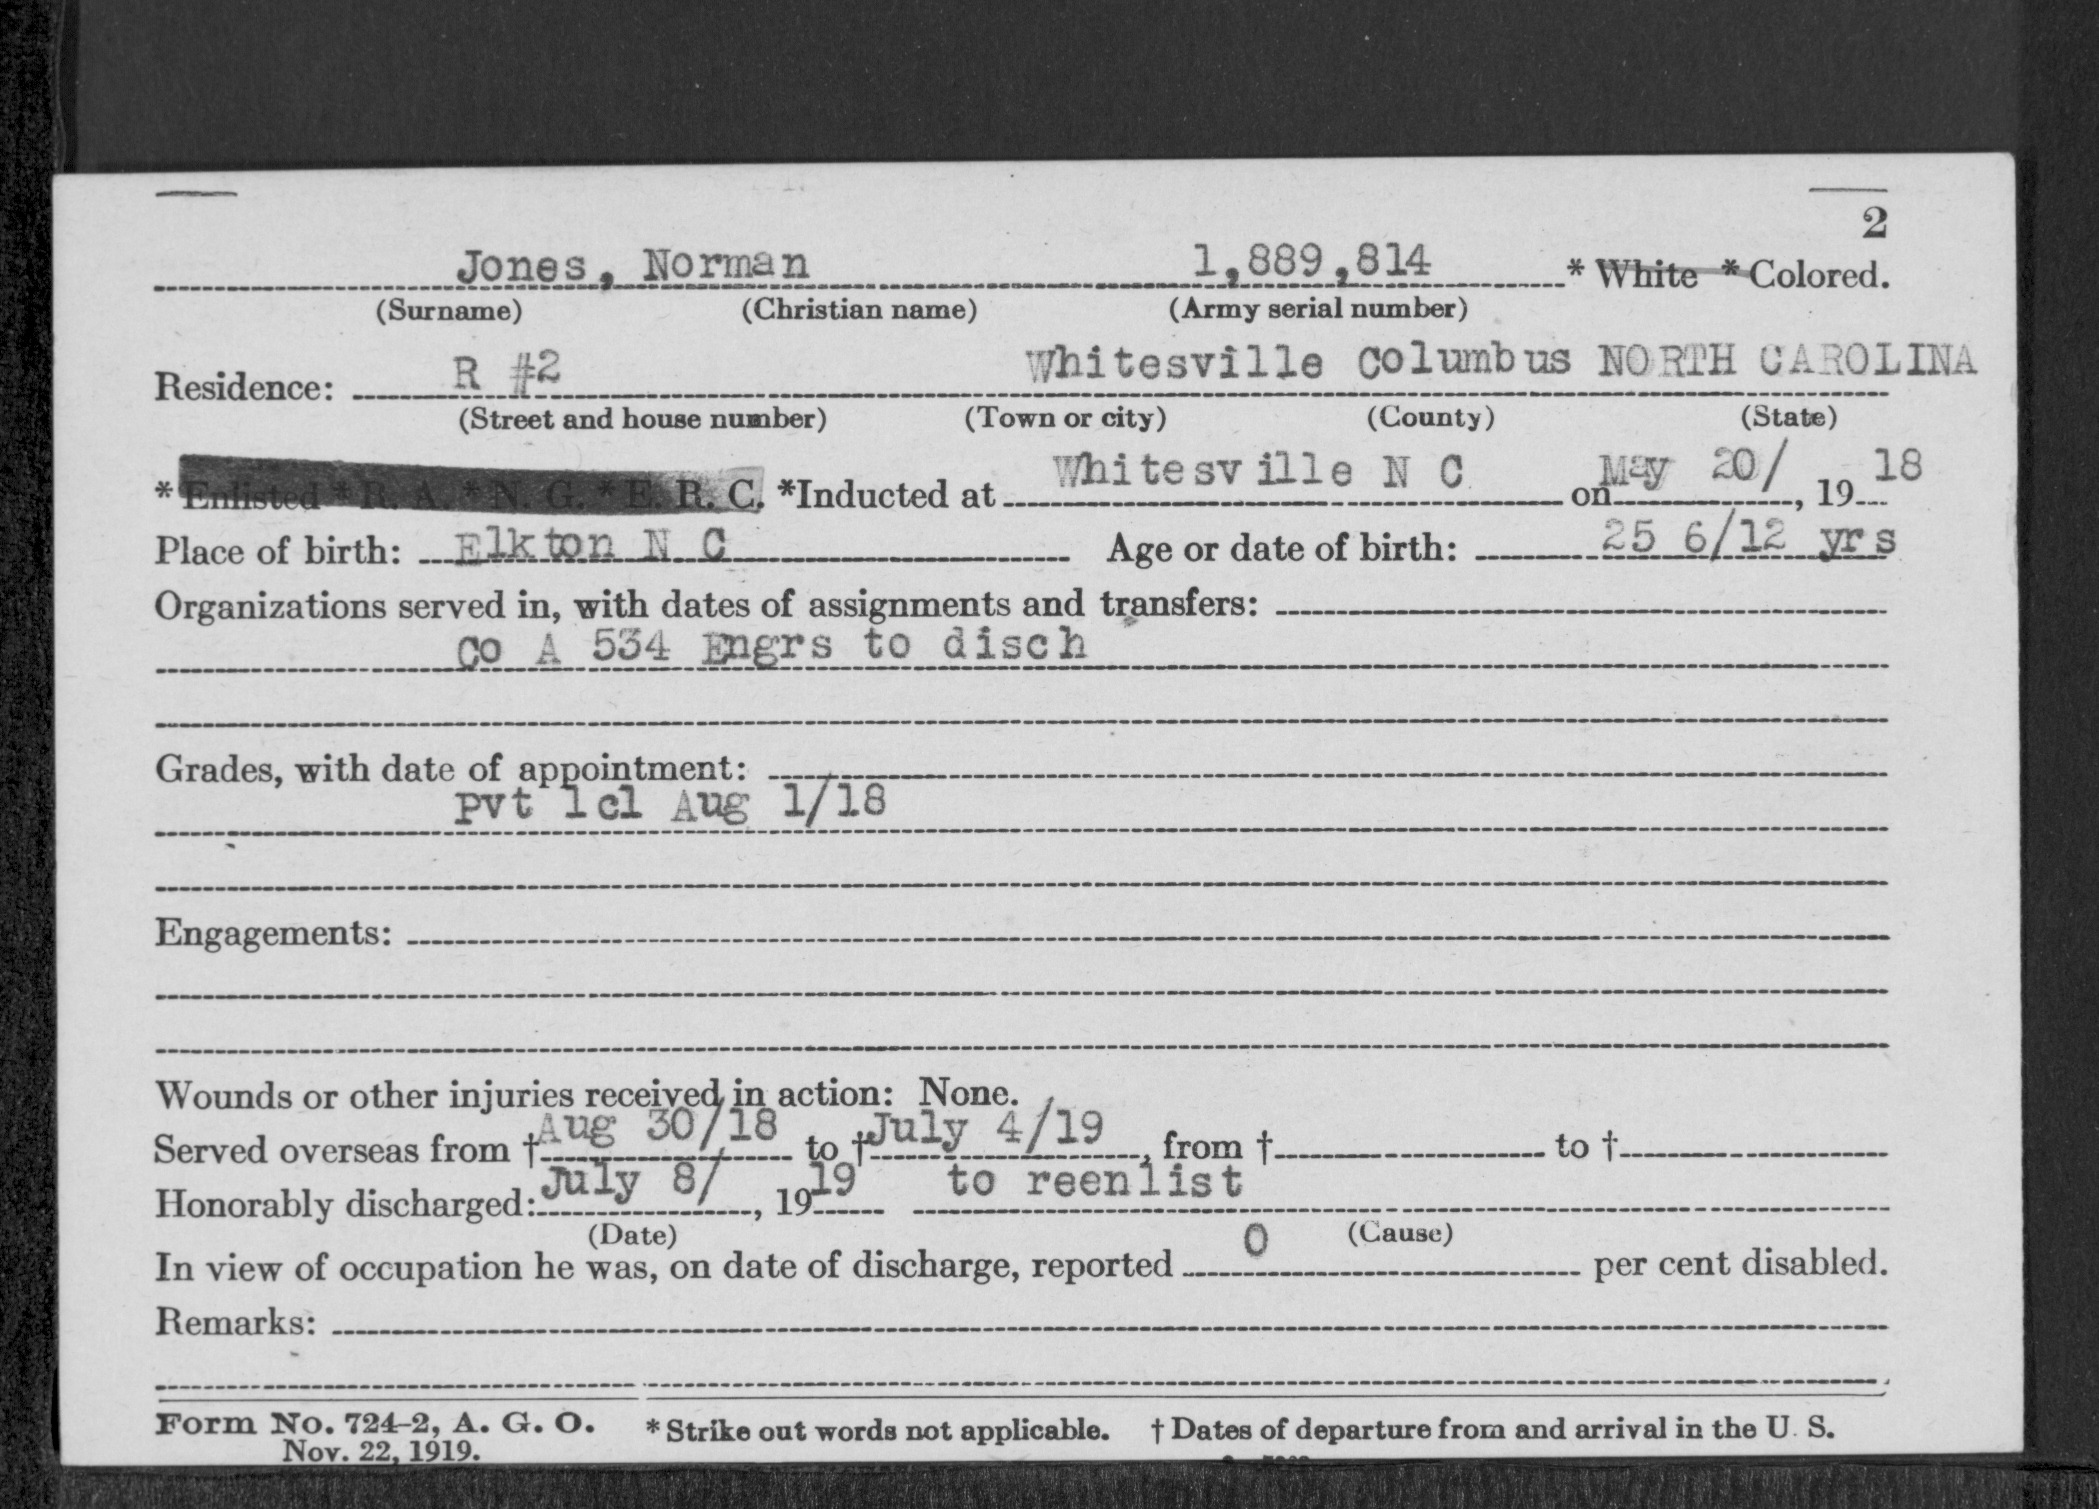 2
Jones, Norman 1,889,814 * White * Colored.
(Surname) (Christian name) (Army serial number)
Residence: R #2 Whitesville Columbus NORTH CAROLINA
(Street and house number) (Town or city) (County) (State)
* Enlisted * R. A. * N. G. * E. R. C. *Inducted at Whitesville N C on May 20/, 19 18
Place of birth: Elkton N C Age or date of birth: 25 6/12 yrs
Organizations served in, with dates of assignments and transfers:
Co A 534 Engrs to disch
Grades, with date of appointment:
Pvt 1cl Aug 1/18
Engagements:
Wounds or other injuries received in action: None.
Served overseas from † Aug 30/18 to † July 4/19, from † to †
Honorably discharged: July 8/, 19 19 to reenlist
(Date) (Cause)
In view of occupation he was, on date of discharge, reported 0 per cent disabled.
Remarks:
Form No. 724-2, A. G. O. * Strike out words not applicable. † Dates of departure from and arrival in the U. S.
Nov. 22, 1919.